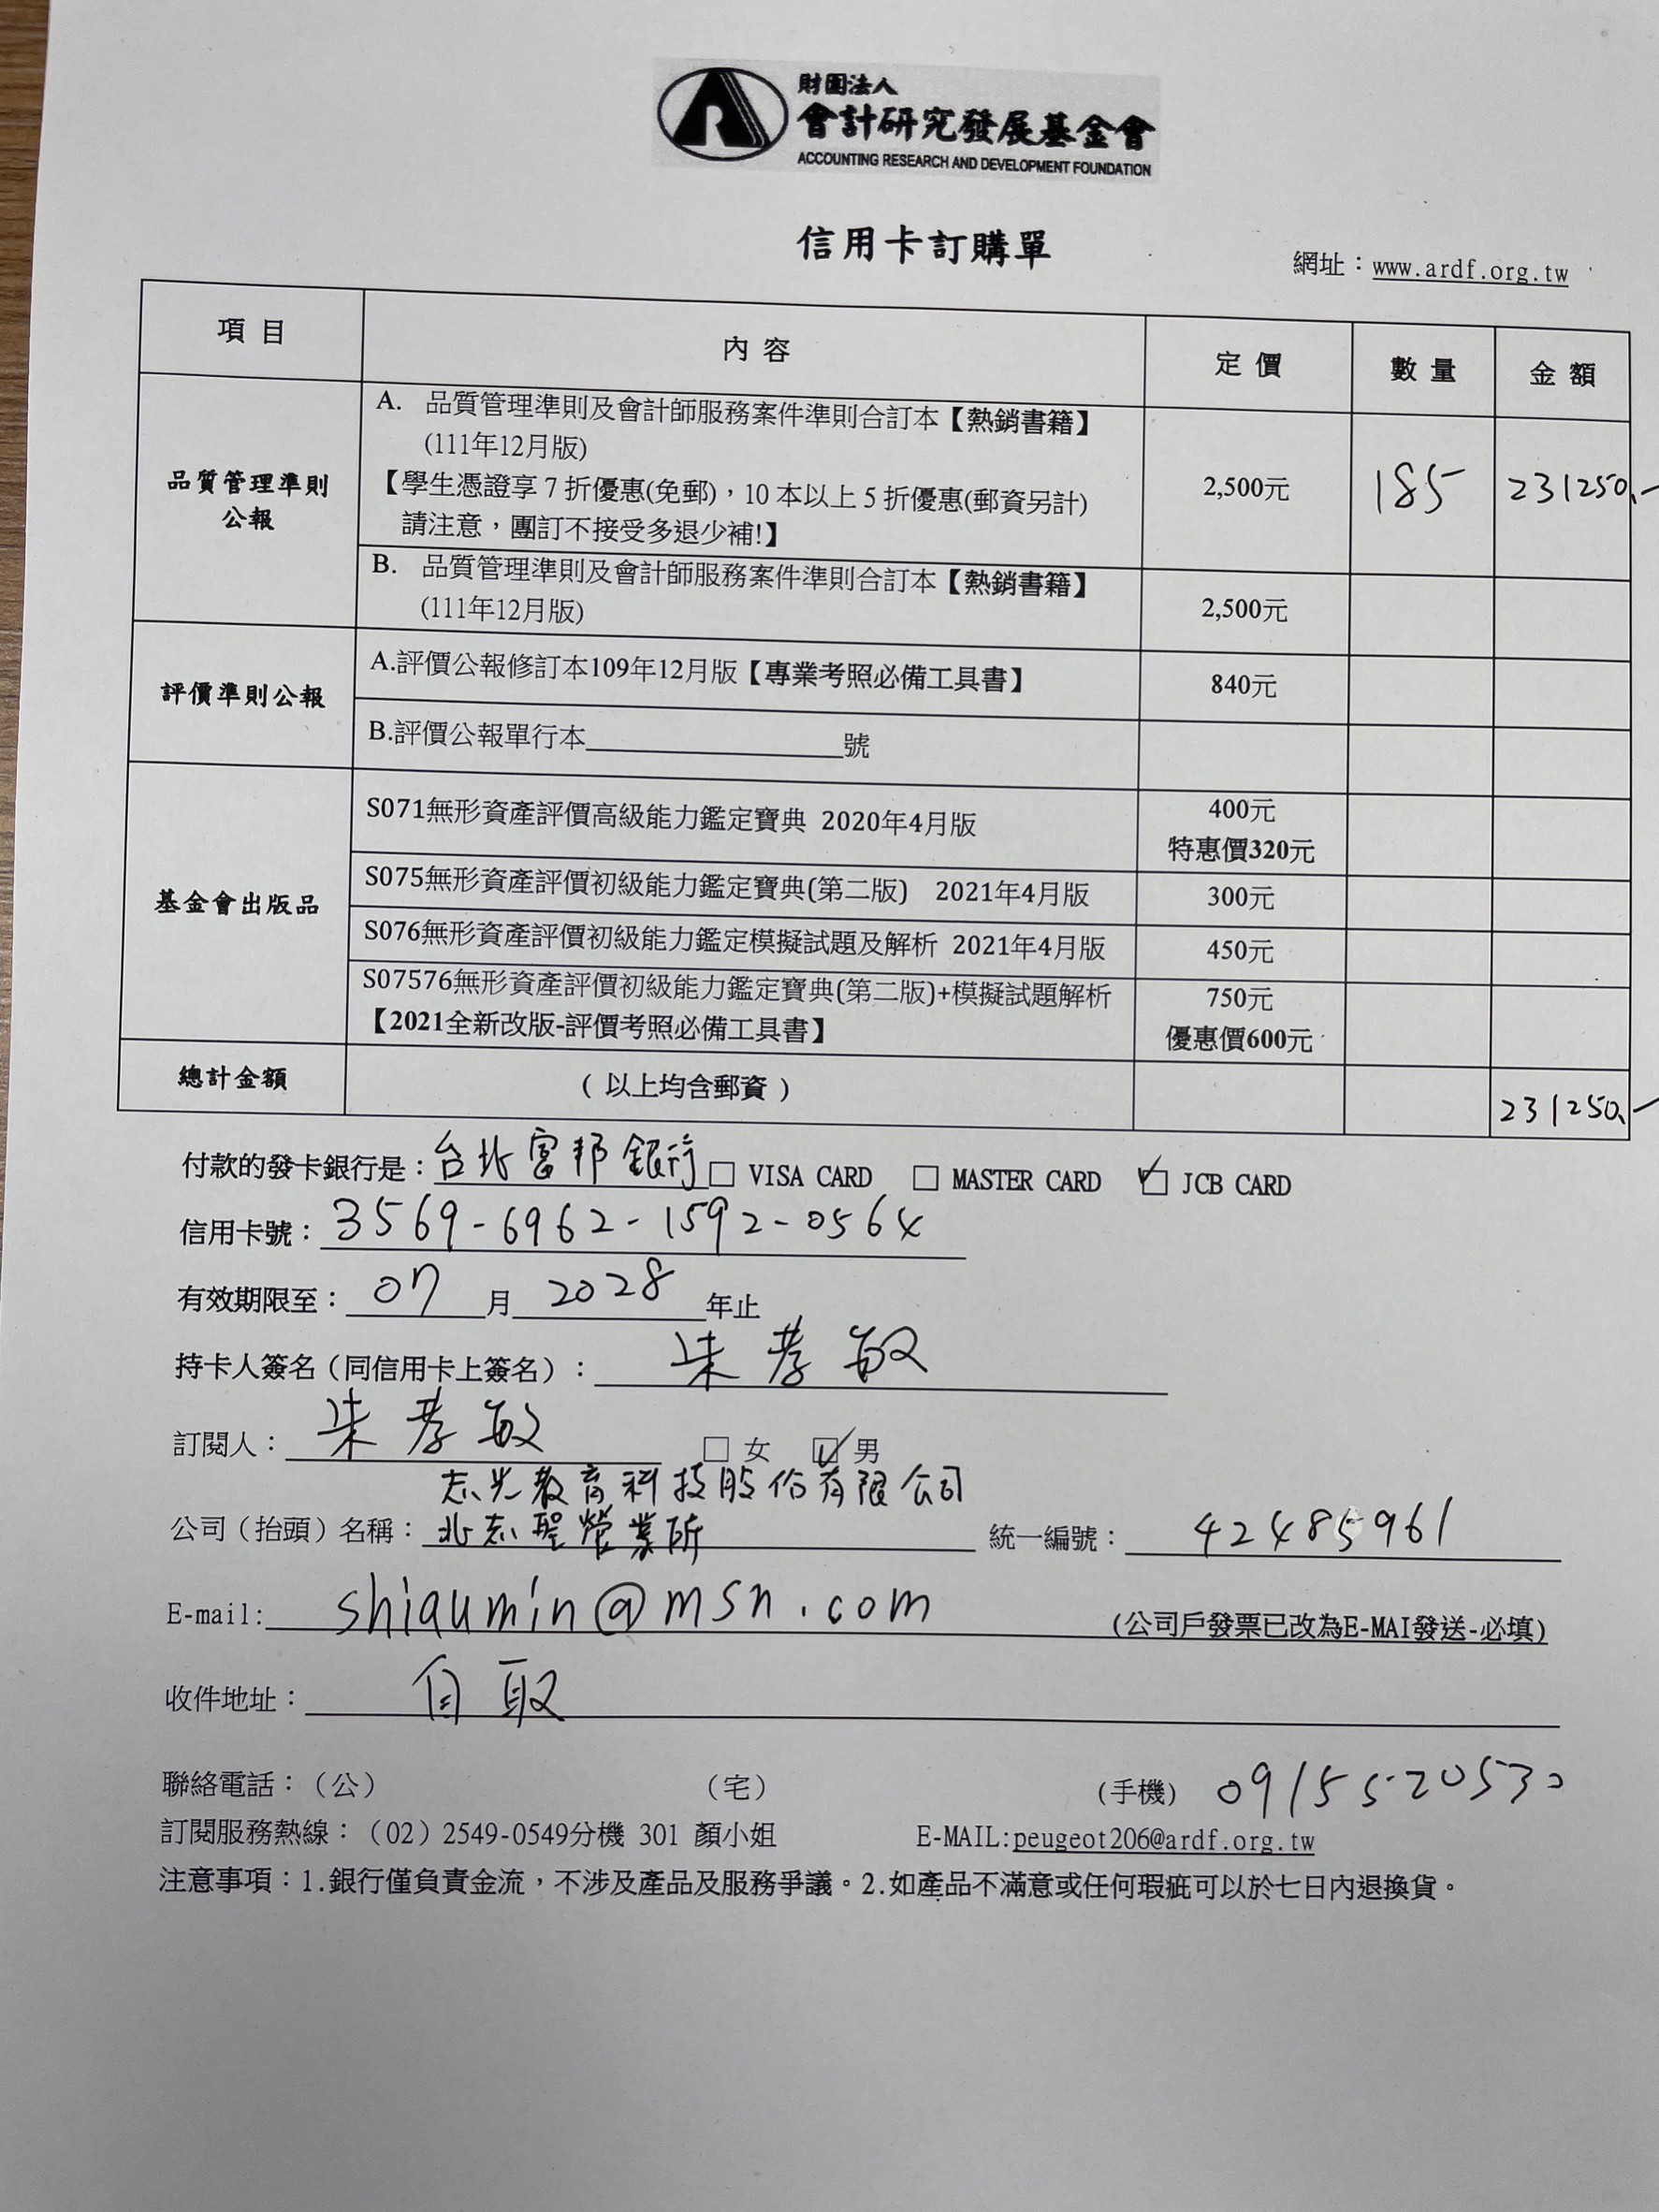 財團法人
會計研究發展基金會
ACCOUNTING RESEARCH AND DEVELOPMENT FOUNDATION
信用卡訂購單
網址：www.ardf.org.tw
項目 內容 定價 數量 金額
品質管理準則公報
A. 品質管理準則及會計師服務案件準則合訂本【熱銷書籍】
(111年12月版)
【學生憑證享7折優惠(免郵)，10本以上5折優惠(郵資另計)
請注意，團訂不接受多退少補!】
2,500元 185 231250.-
B. 品質管理準則及會計師服務案件準則合訂本【熱銷書籍】
(111年12月版)
2,500元
評價準則公報
A.評價公報修訂本109年12月版【專業考照必備工具書】 840元
B.評價公報單行本＿＿＿＿號
基金會出版品
S071無形資產評價高級能力鑑定寶典 2020年4月版 400元
特惠價320元
S075無形資產評價初級能力鑑定寶典(第二版) 2021年4月版 300元
S076無形資產評價初級能力鑑定模擬試題及解析 2021年4月版 450元
S07576無形資產評價初級能力鑑定寶典(第二版)+模擬試題解析 750元
【2021全新改版-評價考照必備工具書】 優惠價600元
總計金額 (以上均含郵資) 231250.-
付款的發卡銀行是：台北富邦銀行 □ VISA CARD □ MASTER CARD ☑ JCB CARD
信用卡號：3569-6962-1592-0564
有效期限至：07月2028年止
持卡人簽名(同信用卡上簽名)：朱孝敏
訂閱人：朱孝敏 □ 女 ☑ 男
志光教育科技股份有限公司
公司(抬頭)名稱：北志聖營業所 統一編號：42485961
E-mail: shiaumin@msn.com (公司戶發票已改為E-MAI發送-必填)
收件地址：自取
聯絡電話：(公) (宅) (手機) 0915520530
訂閱服務熱線：(02) 2549-0549分機 301 顏小姐 E-MAIL:peugeot206@ardf.org.tw
注意事項：1.銀行僅負責金流，不涉及產品及服務爭議。2.如產品不滿意或任何瑕疵可以於七日內退換貨。